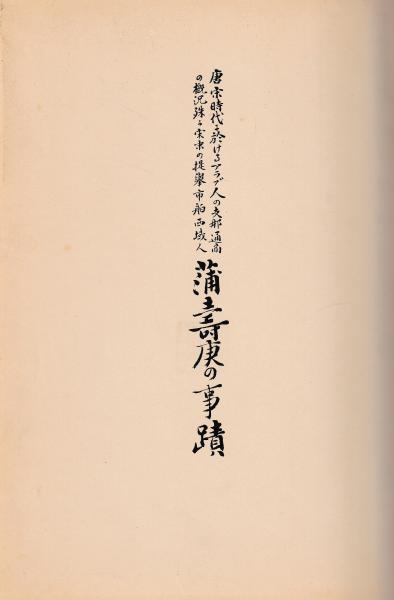 唐宋時代に於けるアラブ人の支那通商
の概況殊に宋末の提擧市舶西域人
蒲壽庚の事蹟